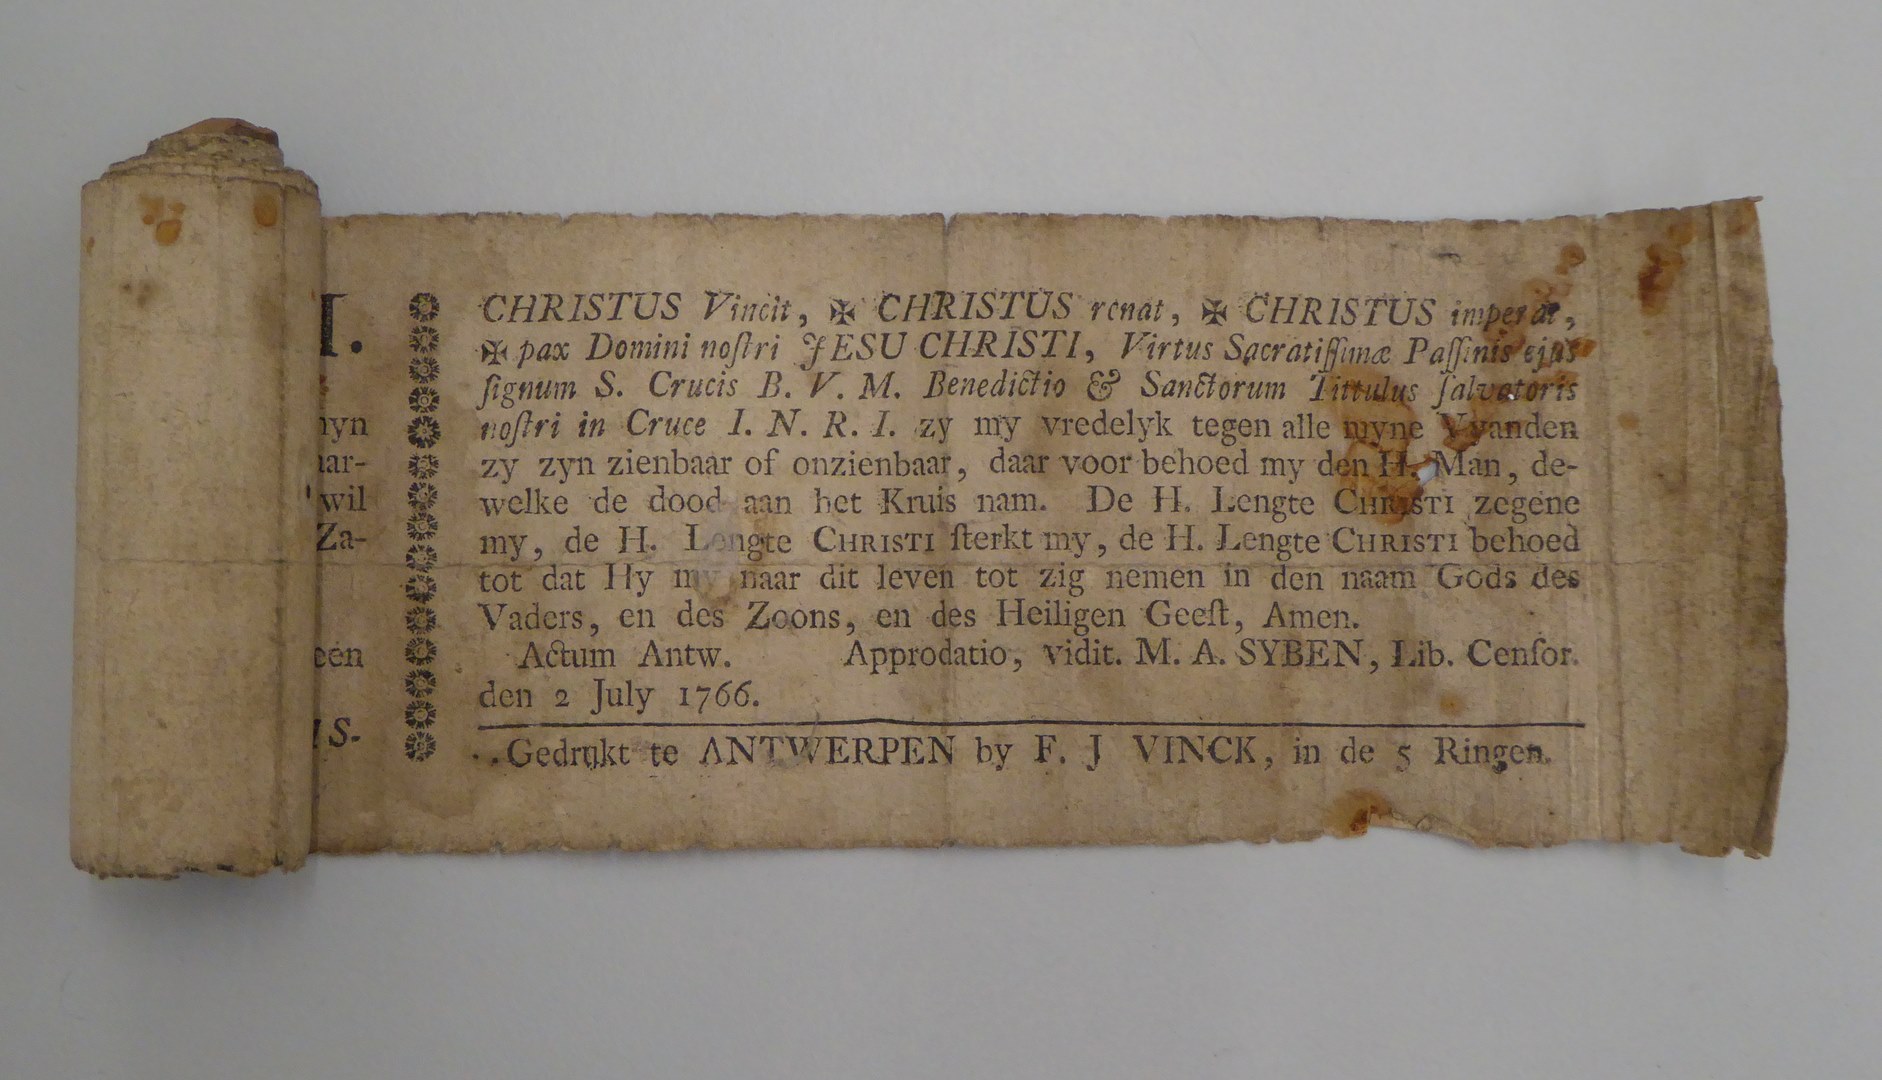 I.
yn
ar-
wil
Za-
een
S.
CHRISTUS Vincit, ✠ CHRISTUS renat, ✠ CHRISTUS imperat,
✠ pax Domini noſtri JESU CHRISTI, Virtus Sacratiſſimæ Paſſinis ejus
ſignum S. Crucis B. V. M. Benedictio & Sanctorum Tittulus ſalvatoris
noſtri in Cruce I. N. R. I. zy my vredelyk tegen alle myne Vyanden
zy zyn zienbaar of onzienbaar, daar voor behoed my den H. Man, de-
welke de dood aan het Kruis nam. De H. Lengte CHRISTI zegene
my, de H. Lengte CHRISTI ſterkt my, de H. Lengte CHRISTI behoed
tot dat Hy my naar dit leven tot zig nemen in den naam Gods des
Vaders, en des Zoons, en des Heiligen Geeſt, Amen.
Actum Antw. Approdatio, vidit. M. A. SYBEN, Lib. Cenſor.
den 2 July 1766.
Gedrukt te ANTWERPEN by F. J VINCK, in de 5 Ringen.